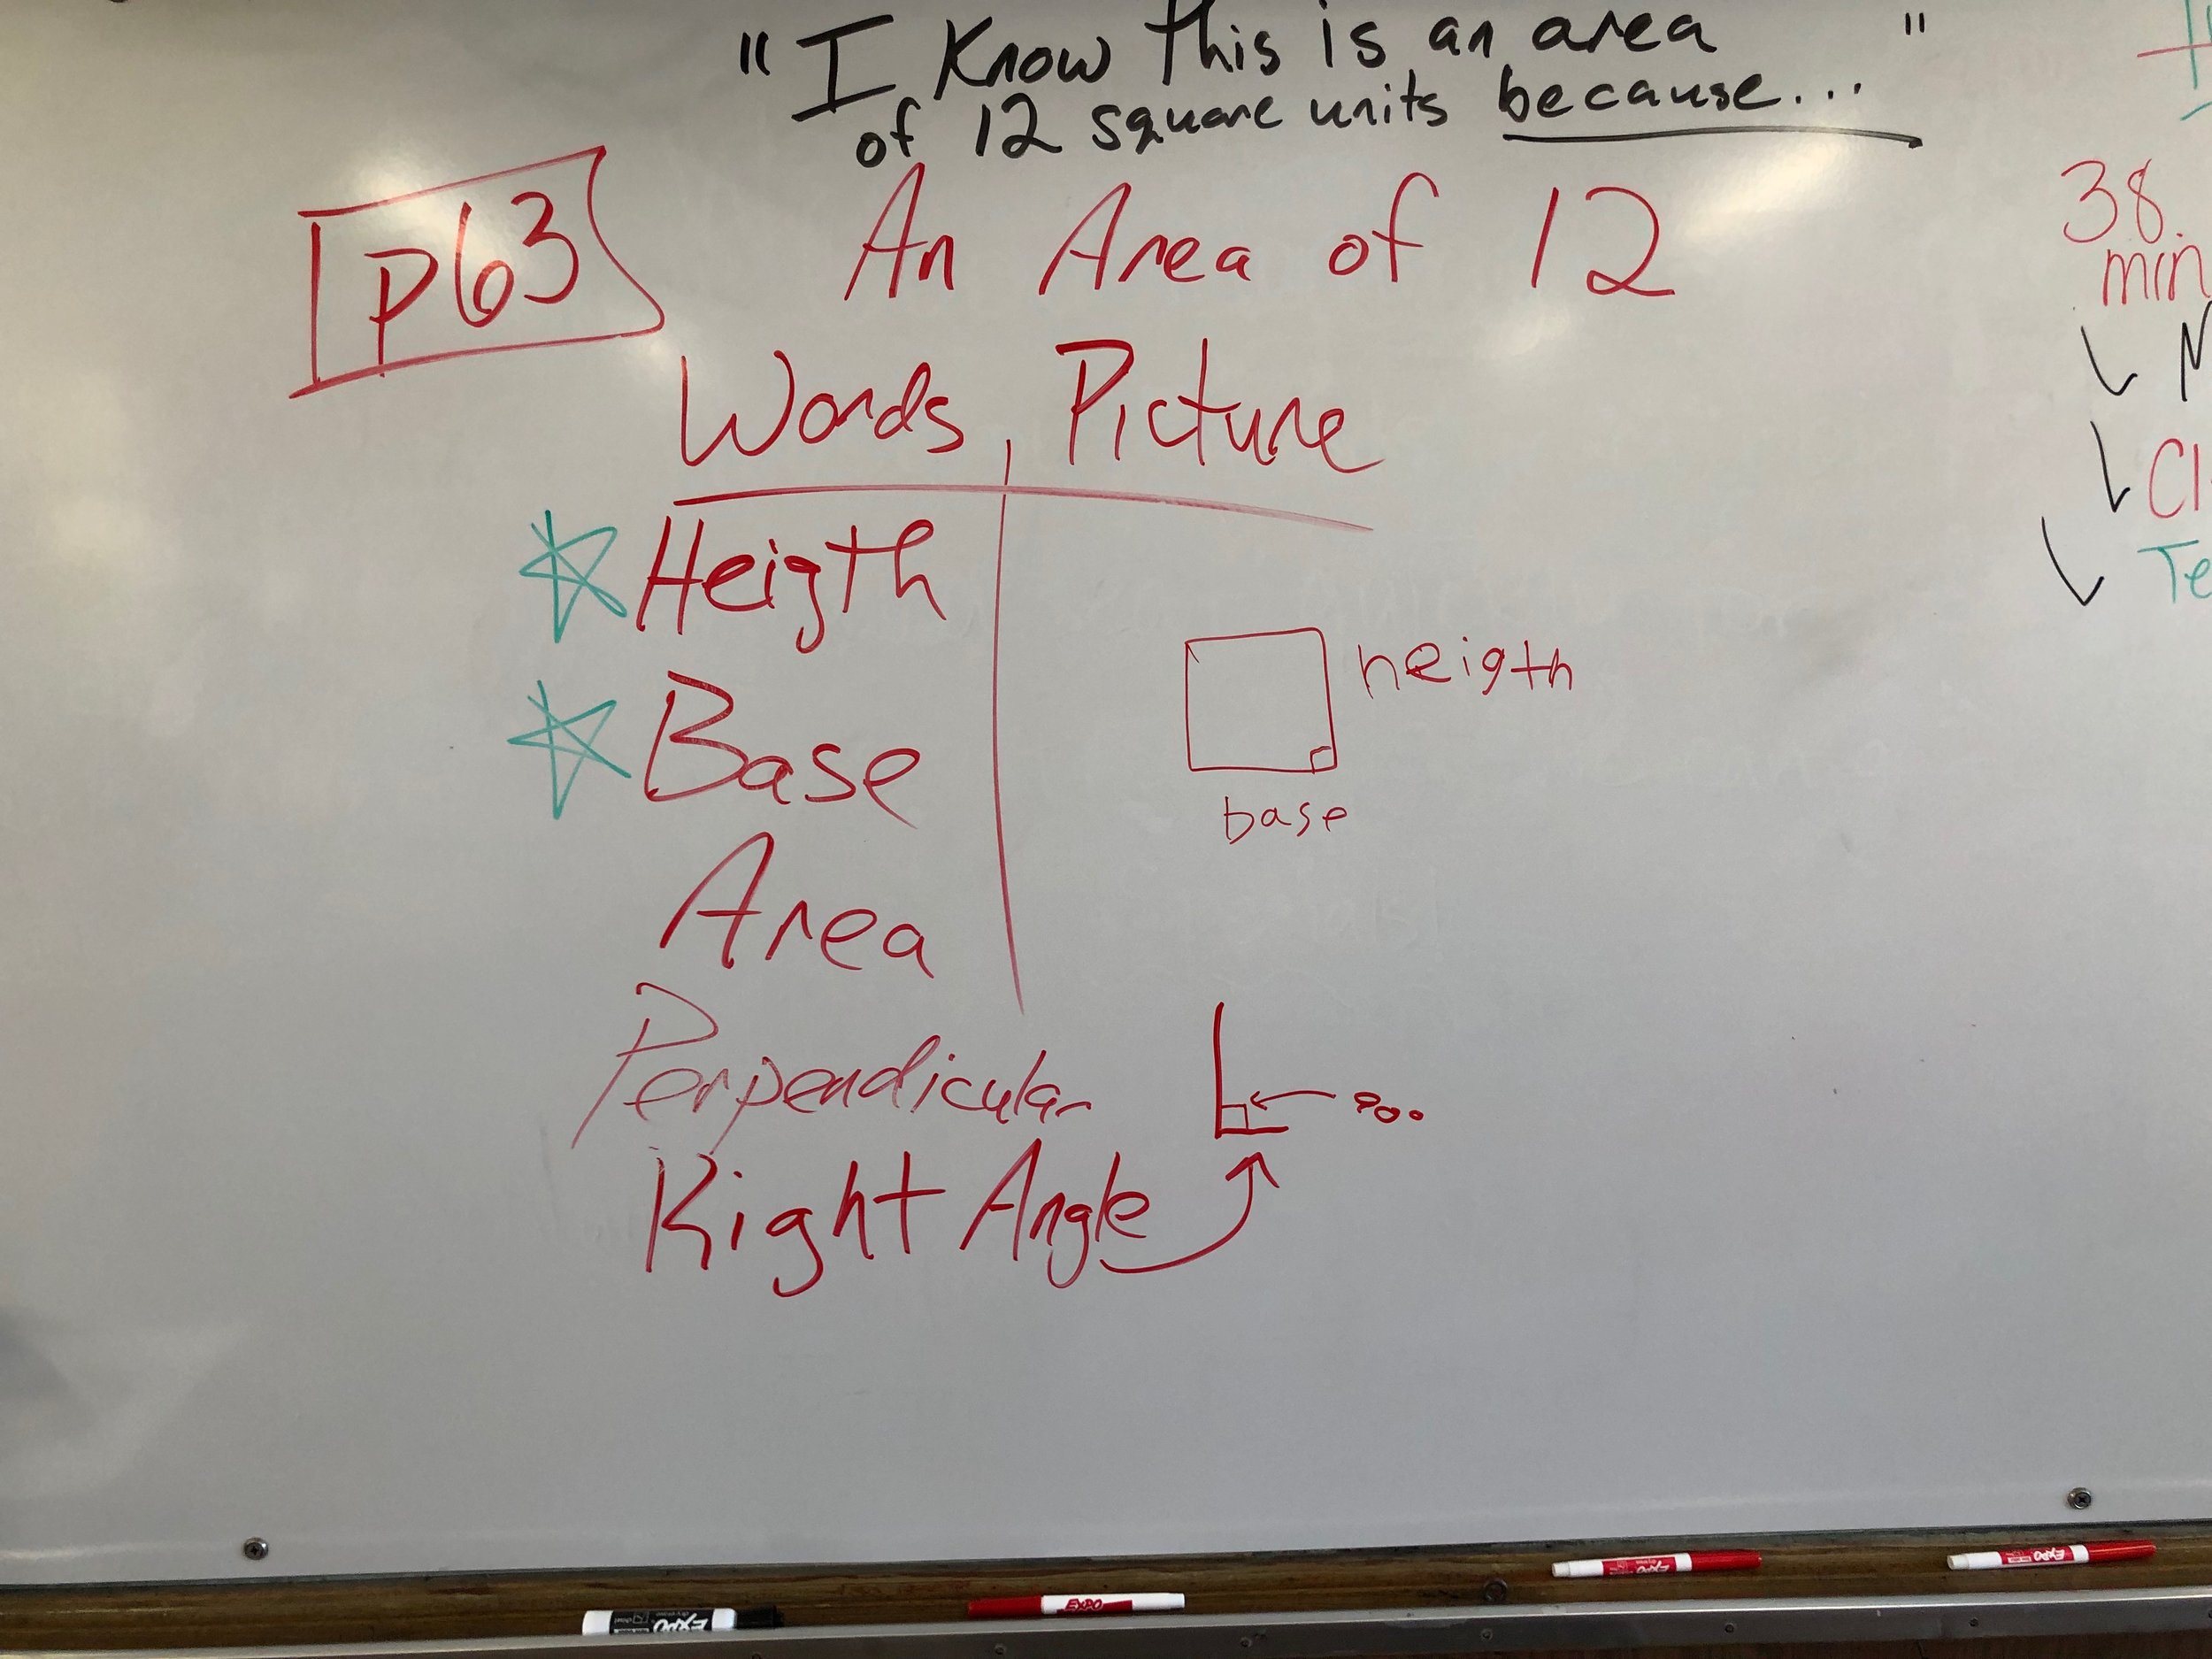 "I Know this is an area "
of 12 square units because...
P63
An Area of 12
Words, Picture
Heigth
heigth
Base
base
Area
Perpendicular
90°
Right Angle
38
min
EXPO
EXPO
EXPO
EXPO